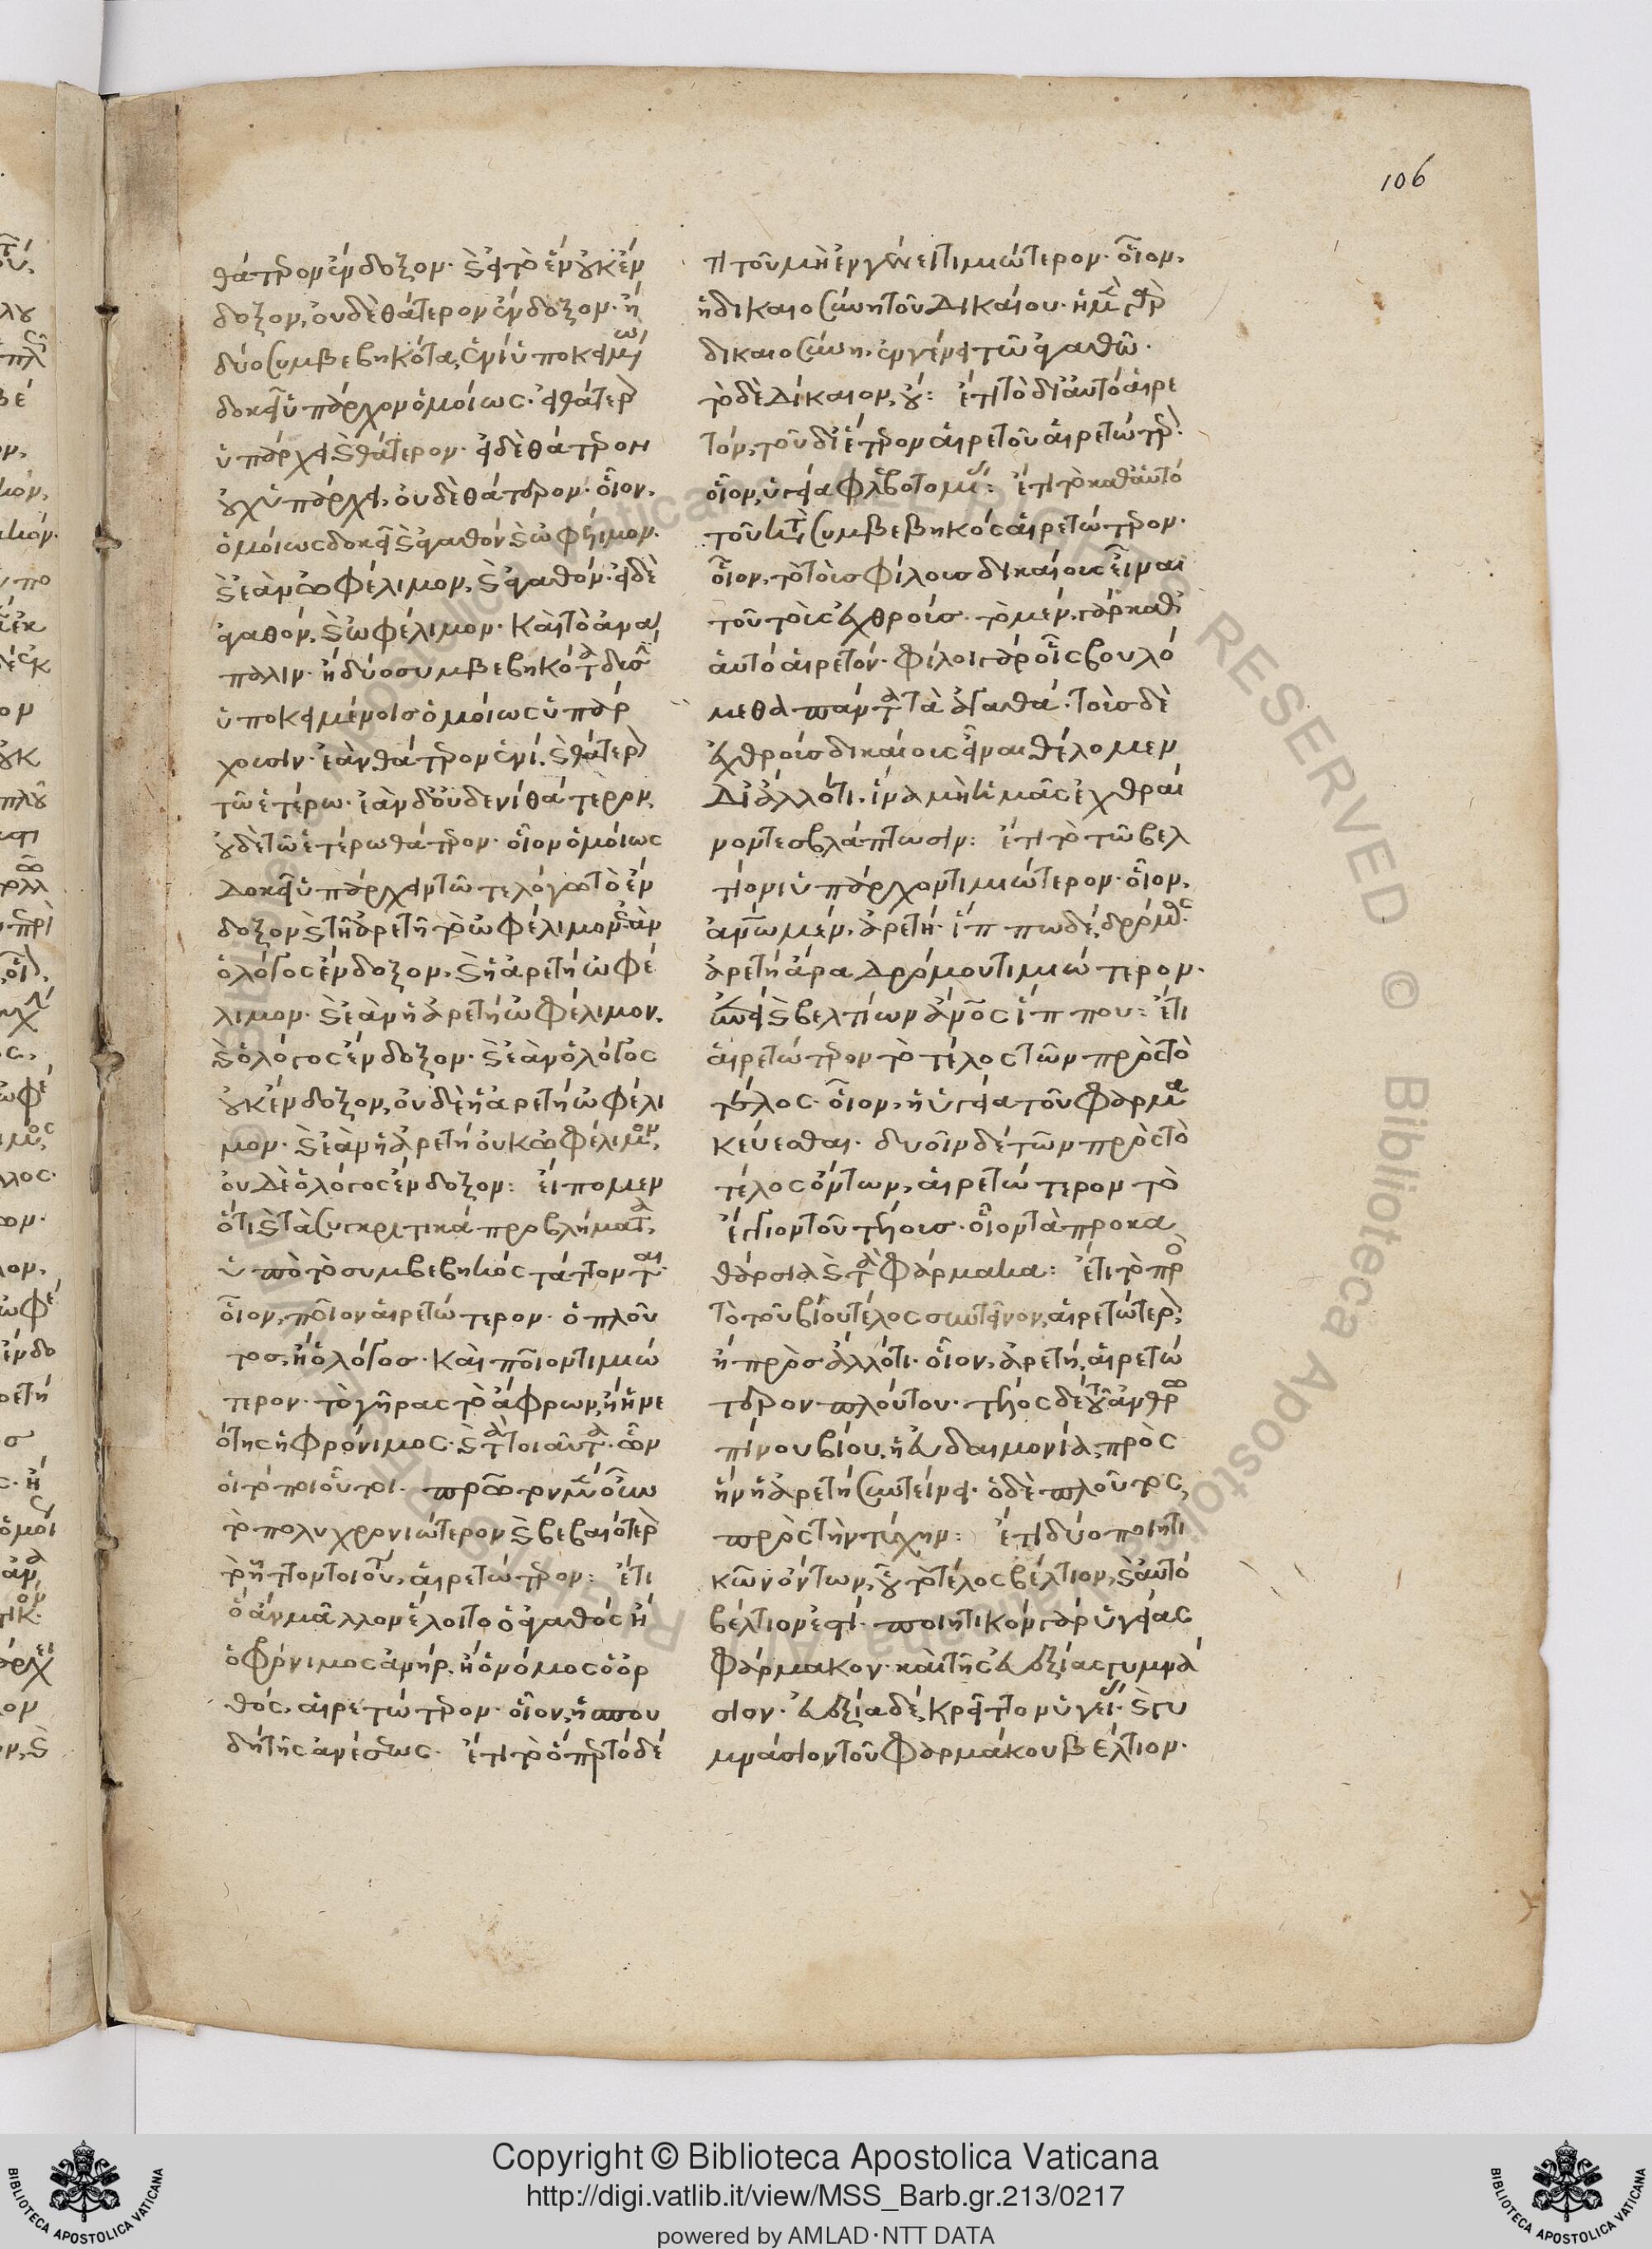 106
θάτερον ἔνδοξον· καὶ εἰ τὸ ἓν οὐκ ἔν
δοξον, οὐδὲ θάτερον ἔνδοξον· ἢ
δύο συμβεβηκότα, ἑνὶ ὑποκειμένω
δοκεῖ ὑπάρχειν ὁμοίως· εἰ θάτερον
ὑπάρχει καὶ θάτερον· εἰ δὲ θάτερον
οὐχ ὑπάρχει, οὐδὲ θάτερον· οἷον,
ὁμοίως δοκεῖ καὶ ἀγαθὸν καὶ ὠφέλιμον·
καὶ ἐὰν ὠφέλιμον, καὶ ἀγαθόν· εἰ δὲ
ἀγαθόν, καὶ ὠφέλιμον· καὶ τὸ ἀνά
παλιν· ἢ δύο συμβεβηκότα δυσὶν
ὑποκειμένοις ὁμοίως ὑπάρ
χουσιν· ἐὰν θάτερον ἑνί, καὶ θάτερον
τῶ ἑτέρω· ἐὰν δ' οὐδενὶ θάτερον,
οὐδὲ τῶ ἑτέρω θάτερον· οἷον ὁμοίως
δοκεῖ ὑπάρχειν τῶ τε λόγω τὸ ἔν
δοξον καὶ τῆ ἀρετῆ τὸ ὠφέλιμον· καὶ ἐὰν
ὁ λόγος ἔνδοξον, καὶ ἡ ἀρετὴ ὠφέ
λιμον· καὶ ἐὰν ἡ ἀρετὴ ὠφέλιμον,
καὶ ὁ λόγος ἔνδοξον· καὶ ἐὰν ὁ λόγος
οὐκ ἔνδοξον, οὐδὲ ἡ ἀρετὴ ὠφέλι
μον· καὶ ἐὰν ἡ ἀρετὴ οὐκ ὠφέλιμον,
οὐδὲ ὁ λόγος ἔνδοξον: εἴπομεν
ὅτι καὶ τὰ συγκριτικὰ προβλήματα,
ὑπὸ τὸ συμβεβηκὸς τάττονται·
οἷον, ποῖον αἱρετώτερον· ὁ πλοῦ
τος, ἢ ὁ λόγος· καὶ ποῖον τιμιώ
τερον· τὸ γῆρας τὸ ἄφρων, ἢ ἡ νε
ότης ἡ φρόνιμος· καὶ τὰ τοιαῦτα· ὧν
οἱ τόποι οὗτοι· πρῶτον μὲν οὖν
τὸ πολυχρονιώτερον καὶ βεβαιότερον
τὸ ἧττον τοιούτου, αἱρετώτερον: ἔτι
ὃ ἂν μᾶλλον ἕλοιτο ὁ ἀγαθὸς ἢ
ὁ φρόνιμος ἀνήρ, ἢ ὁ νόμος ὁ ὀρ
θός, αἱρετώτερον· οἷον, ἡ σπου
δὴ τῆς ἀνέσεως· ἔτι τὸ ὅπερ τόδε
τι τοῦ μὴ ἐν γένει τιμιώτερον· οἷον,
ἡ δικαιοσύνη τοῦ δικαίου· ἡ μὲν γὰρ
δικαιοσύνη, ἐν γένει τῶ ἀγαθῶ·
τὸ δὲ δίκαιον, οὔ: ἔτι τὸ δι' αὐτὸ αἱρε
τόν, τοῦ δι' ἕτερον αἱρετοῦ αἱρετώτερον·
οἷον, ὑγεία φλεβοτομίας: ἔτι τὸ καθ' αὑτὸ
τοῦ κατὰ συμβεβηκὸς αἱρετώτερον·
οἷον, τὸ τοὺς φίλους δικαίους εἶναι
τοῦ τοὺς ἐχθρούς· τὸ μὲν γὰρ καθ'
αὑτὸ αἱρετόν· φίλοις γὰρ οἷς βουλό
μεθα πάντα τὰ ἀγαθά· τοὺς δὲ
ἐχθροὺς δικαίους εἶναι θέλομεν
δι' ἄλλό τι· ἵνα μὴ ἡμᾶς ἐχθραί
νοντες βλάπτωσιν: ἔτι τὸ τῶ βελ
τίονι ὑπάρχον τιμιώτερον· οἷον,
ἀνθρώπω μέν, ἀρετή· ἵππω δέ, δρόμος·
ἀρετὴ ἄρα δρόμου τιμιώτερον·
ἐπεὶ καὶ βελτίων ἄνθρωπος ἵππου: ἔτι
αἱρετώτερον τὸ τέλος τῶν πρὸς τὸ
τέλος· οἷον, ἡ ὑγεία τοῦ φαρμα
κεύεσθαι· δυοῖν δὲ τῶν πρὸς τὸ
τέλος ὄντων, αἱρετώτερον τὸ
ἔγγιον τοῦ τέλους· οἷον τὰ προκα
θάρσια καὶ τὰ φάρμακα: ἔτι τὸ πρὸς
τὸ τοῦ βίου τέλος συντεῖνον, αἱρετώτερον,
ἢ πρὸς ἄλλό τι· οἷον, ἀρετή, αἱρετώ
τερον πλούτου· τέλος δὲ τοῦ ἀνθρω
πίνου βίου, ἡ εὐδαιμονία, πρὸς
ἣν ἡ ἀρετὴ συντείνει· ὁ δὲ πλοῦτος,
πρὸς τὴν τύχην: ἔτι δύο ποιητι
κῶν ὄντων, οὗ τὸ τέλος βέλτιον, καὶ αὐτὸ
βέλτιόν ἐστι· ποιητικὸν γὰρ ὑγείας
φάρμακον· καὶ τῆς εὐεξίας γυμνά
σιον· εὐεξία δέ, κρεῖττον ὑγείας· καὶ γυ
μνάσιον τοῦ φαρμάκου βέλτιον·
Copyright © Biblioteca Apostolica Vaticana
http://digi.vatlib.it/view/MSS_Barb.gr.213/0217
powered by AMLAD · NTT DATA